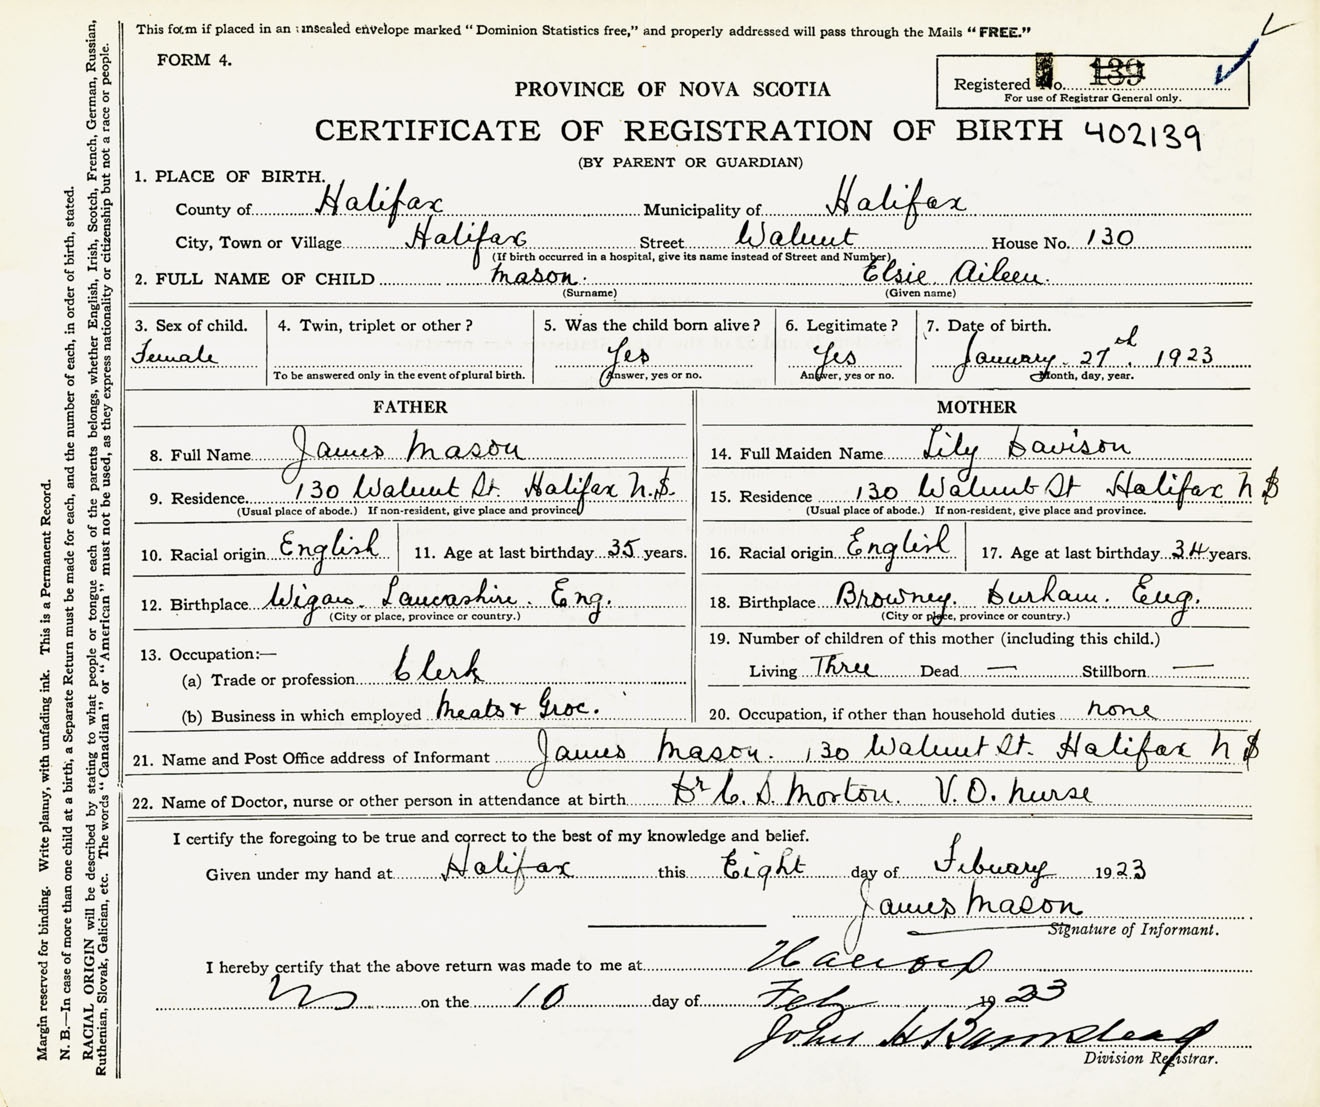 This form if placed in an unsealed envelope marked "Dominion Statistics free," and properly addressed will pass through the Mails "FREE."
FORM 4.
Registered No. 139
For use of Registrar General only.
PROVINCE OF NOVA SCOTIA
CERTIFICATE OF REGISTRATION OF BIRTH 402139
(BY PARENT OR GUARDIAN)
1. PLACE OF BIRTH.
County of Halifax Municipality of Halifax
City, Town or Village Halifax Street Walnut House No. 130
(If birth occurred in a hospital, give its name instead of Street and Number)
2. FULL NAME OF CHILD Mason. Elsie Aileen.
(Surname) (Given name)
3. Sex of child. 4. Twin, triplet or other? 5. Was the child born alive? 6. Legitimate? 7. Date of birth.
Female Yes Yes January 27th. 1923
To be answered only in the event of plural birth. Answer, yes or no. Answer, yes or no. Month, day, year.
FATHER MOTHER
8. Full Name James Mason 14. Full Maiden Name Lily Davison
9. Residence. 130 Walnut St. Halifax N.S. 15. Residence 130 Walnut St Halifax N S
(Usual place of abode.) If non-resident, give place and province (Usual place of abode.) If non-resident, give place and province.
10. Racial origin English 11. Age at last birthday 35 years. 16. Racial origin English 17. Age at last birthday 34 years.
12. Birthplace Wigan. Lancashire. Eng. 18. Birthplace Browney. Durham. Eng.
(City or place, province or country.) (City or place, province or country.)
13. Occupation:— 19. Number of children of this mother (including this child.)
(a) Trade or profession Clerk Living Three Dead — Stillborn —
(b) Business in which employed Meats & Groc. 20. Occupation, if other than household duties none
21. Name and Post Office address of Informant James Mason. 130 Walnut St. Halifax N S
22. Name of Doctor, nurse or other person in attendance at birth Dr C. S. Morton. V.O. Nurse
I certify the foregoing to be true and correct to the best of my knowledge and belief.
Given under my hand at Halifax this Eight day of Febuary 1923
James Mason
Signature of Informant.
I hereby certify that the above return was made to me at Halifax
NS on the 10 day of Feb 1923
John H Barnstead
Division Registrar.
Margin reserved for binding. Write plainly, with unfading ink. This is a Permanent Record.
N. B.—In case of more than one child at a birth, a Separate Return must be made for each, and the number of each, in order of birth, stated.
RACIAL ORIGIN will be described by stating to what people or tongue each of the parents belongs, whether English, Irish, Scotch, French, German, Russian,
Ruthenian, Slovak, Galician, etc. The words "Canadian" or "American" must not be used, as they express nationality or citizenship but not a race or people.